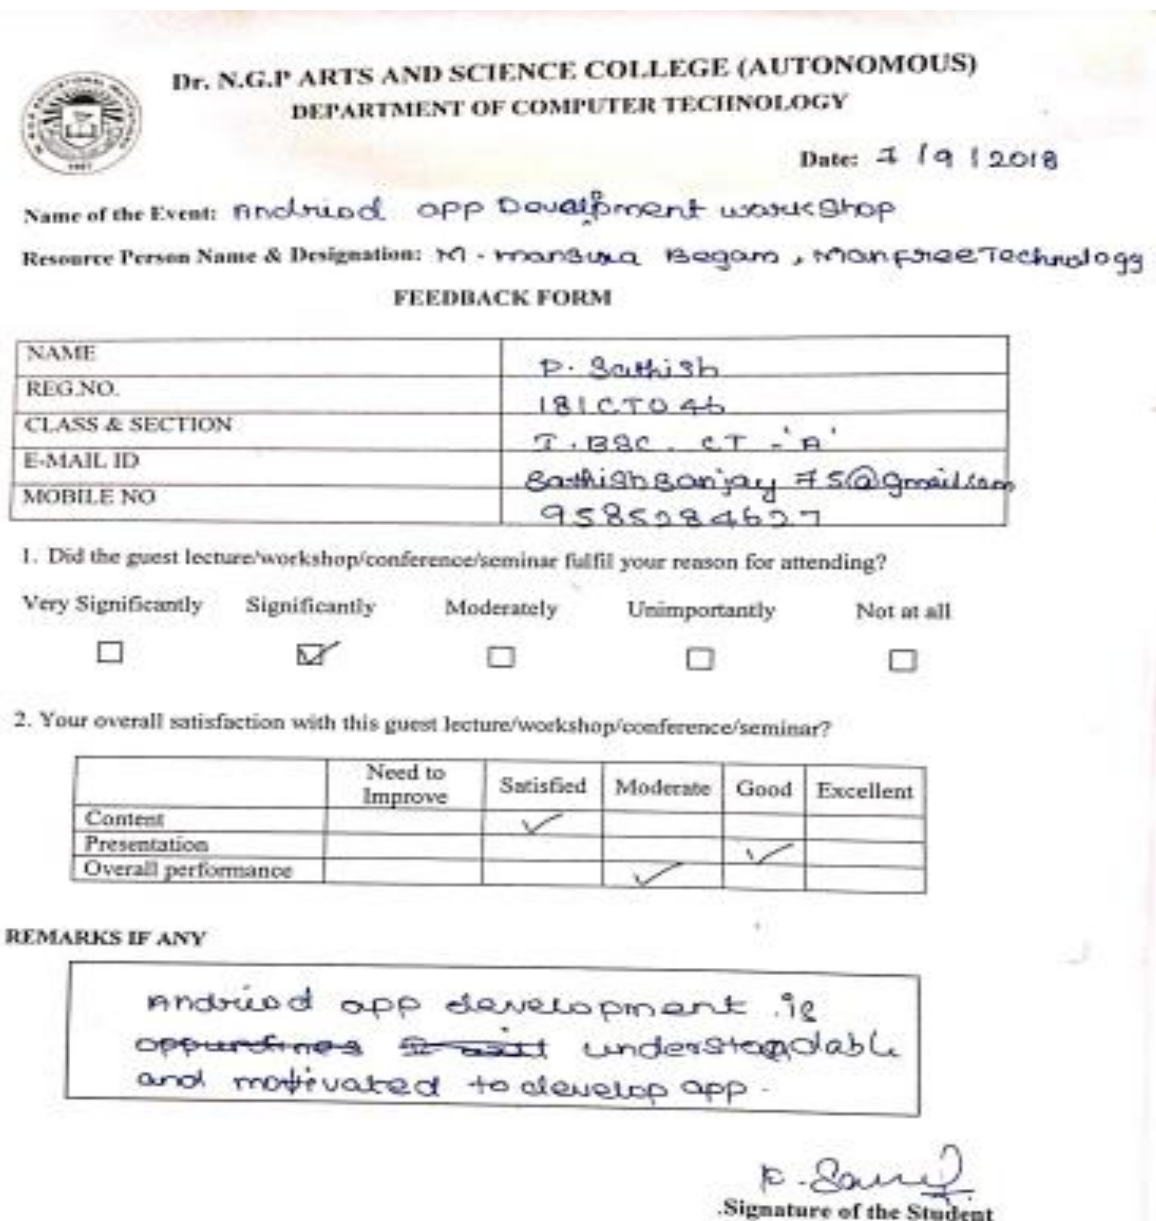 Dr. N.G.P ARTS AND SCIENCE COLLEGE (AUTONOMOUS)
DEPARTMENT OF COMPUTER TECHNOLOGY
Date: 7/9/2018
Name of the Event: Andriod app Devalpment workshop
Resource Person Name & Designation: M. Mansura Begam, Manfree Technology
FEEDBACK FORM
NAME P. Sathish
REG.NO. 181CT046
CLASS & SECTION I. BSC. CT - 'A'
E-MAIL ID Sathishsanjay75@gmail.com
MOBILE NO 9585284627
1. Did the guest lecture/workshop/conference/seminar fulfil your reason for attending?
Very Significantly Significantly Moderately Unimportantly Not at all
2. Your overall satisfaction with this guest lecture/workshop/conference/seminar?
Need to Improve Satisfied Moderate Good Excellent
Content ✓
Presentation ✓
Overall performance ✓
REMARKS IF ANY
Andriod app development is
understandable
and motivated to develop app.
Signature of the Student